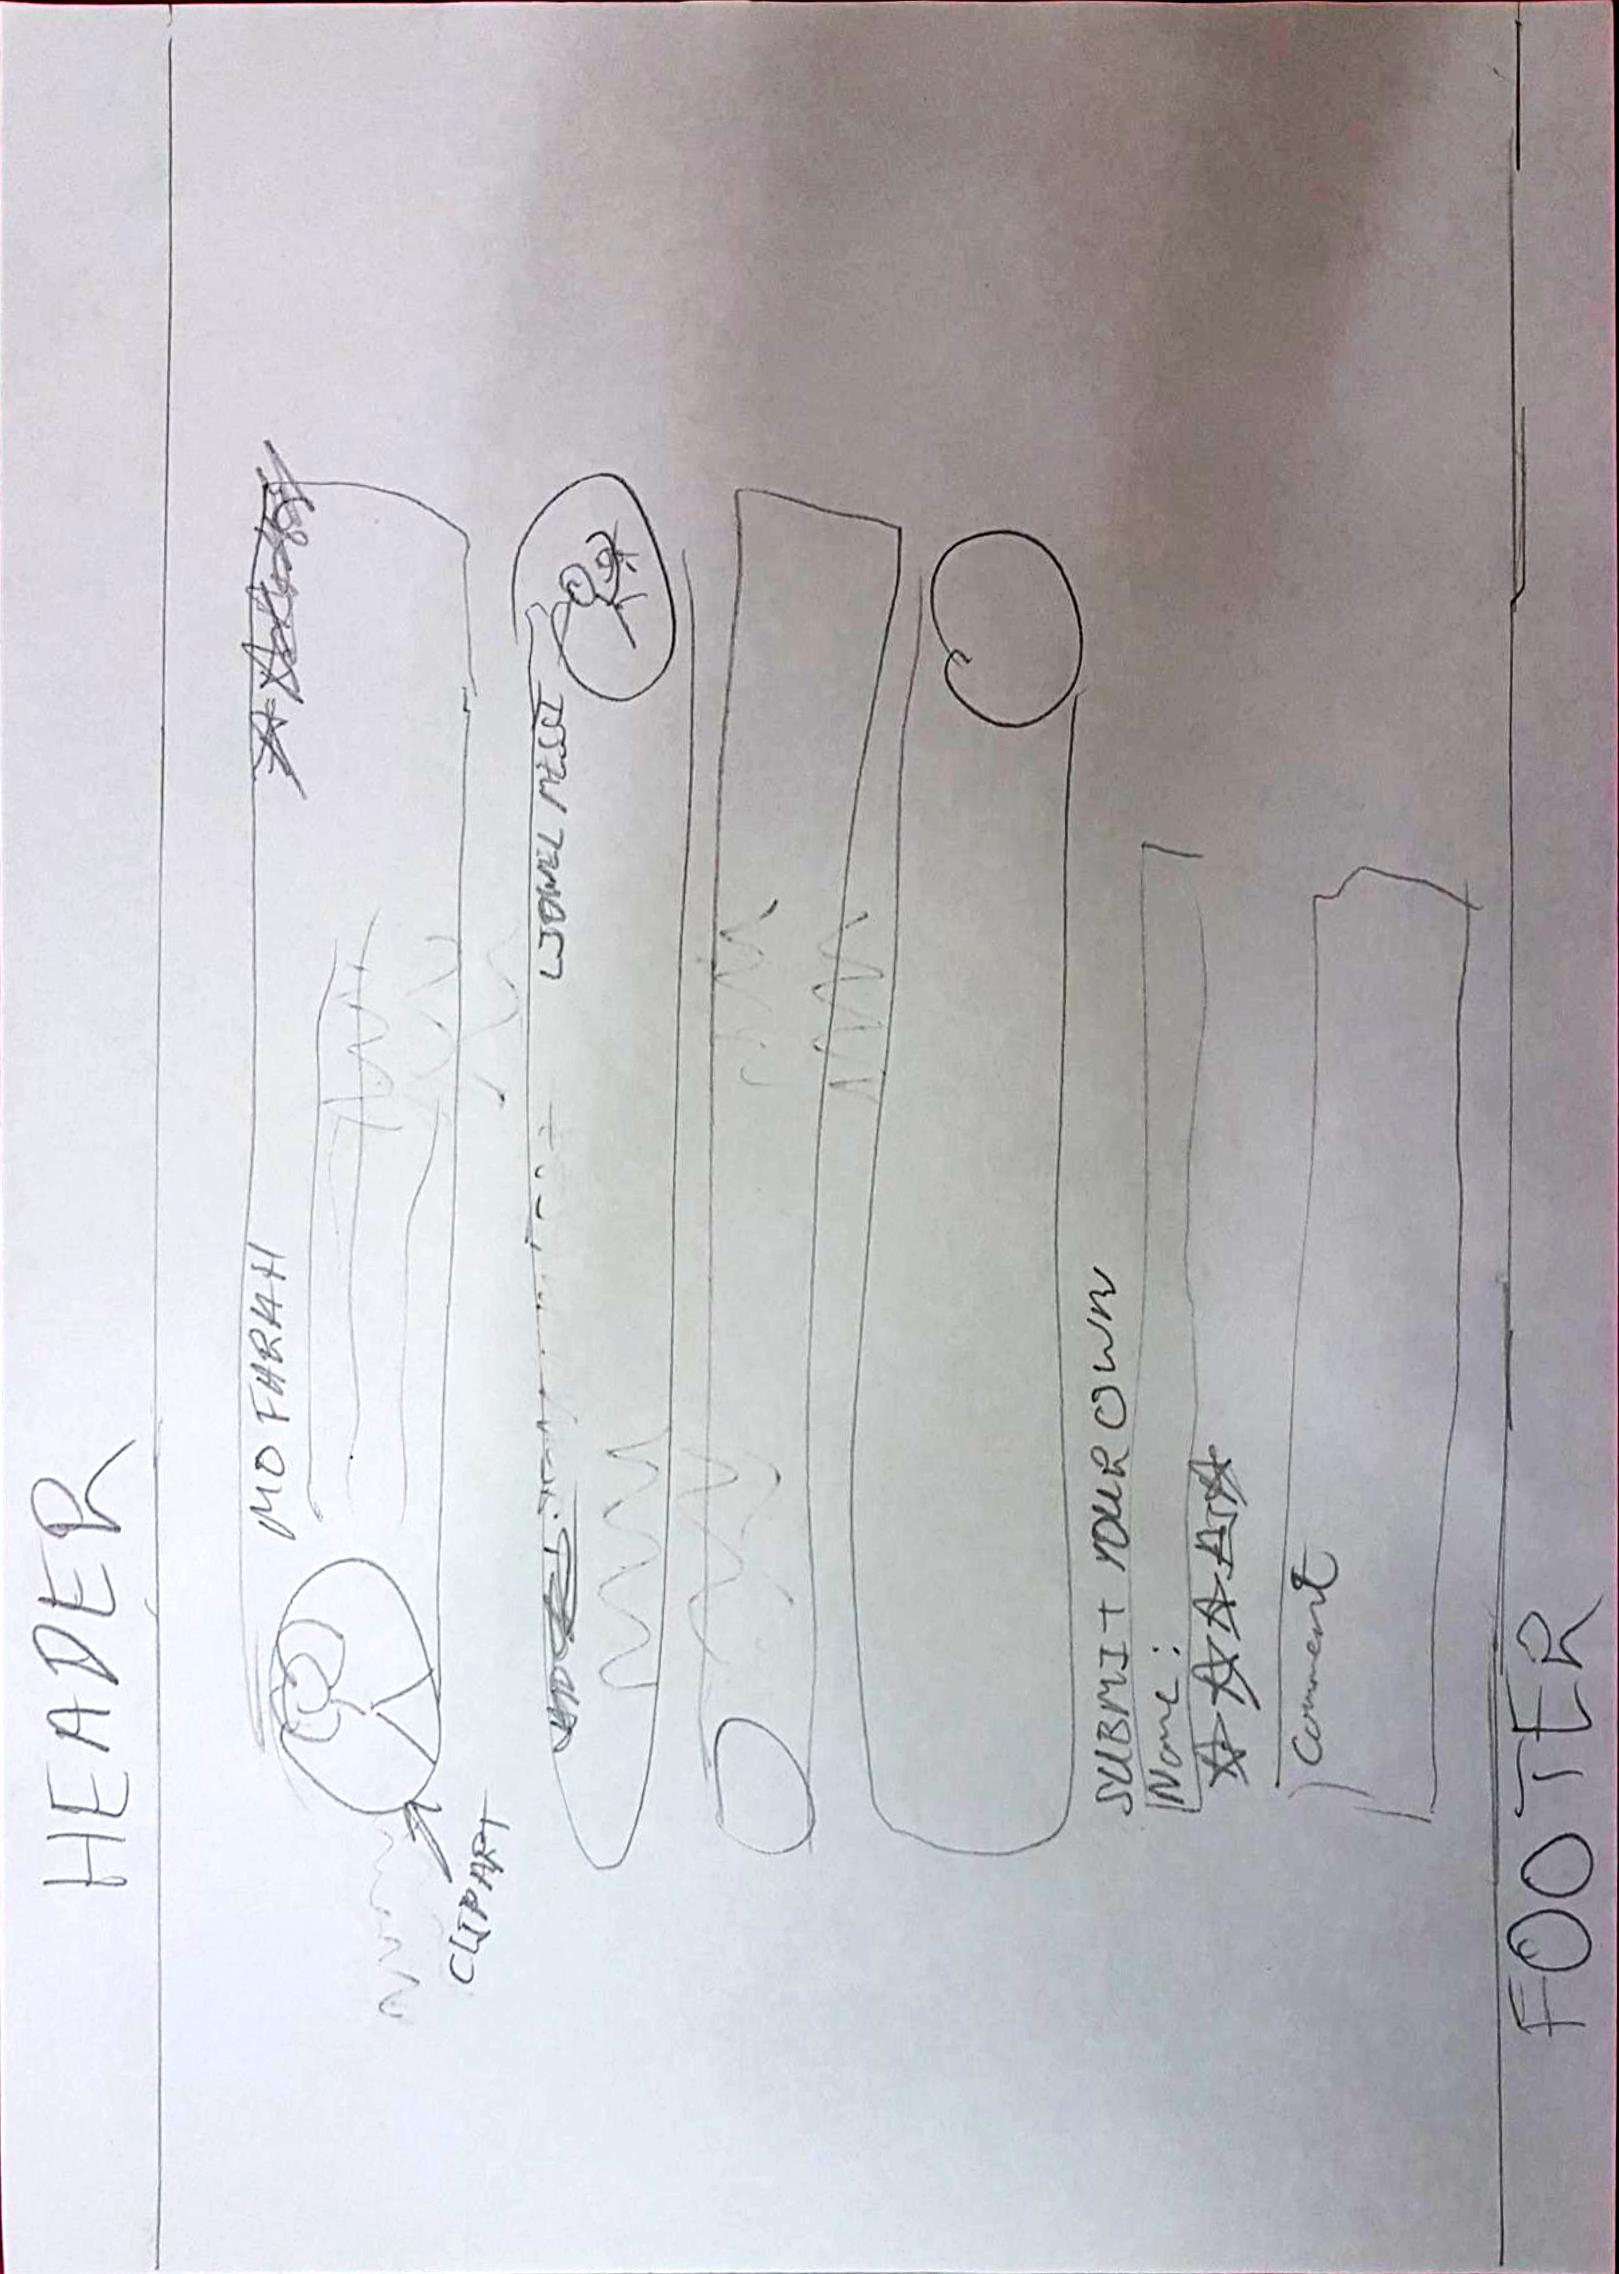 HEADER
MO FARAH
CLIPART
LIONEL MESSI
SUBMIT YOUR OWN
Name:
Comment
FOOTER